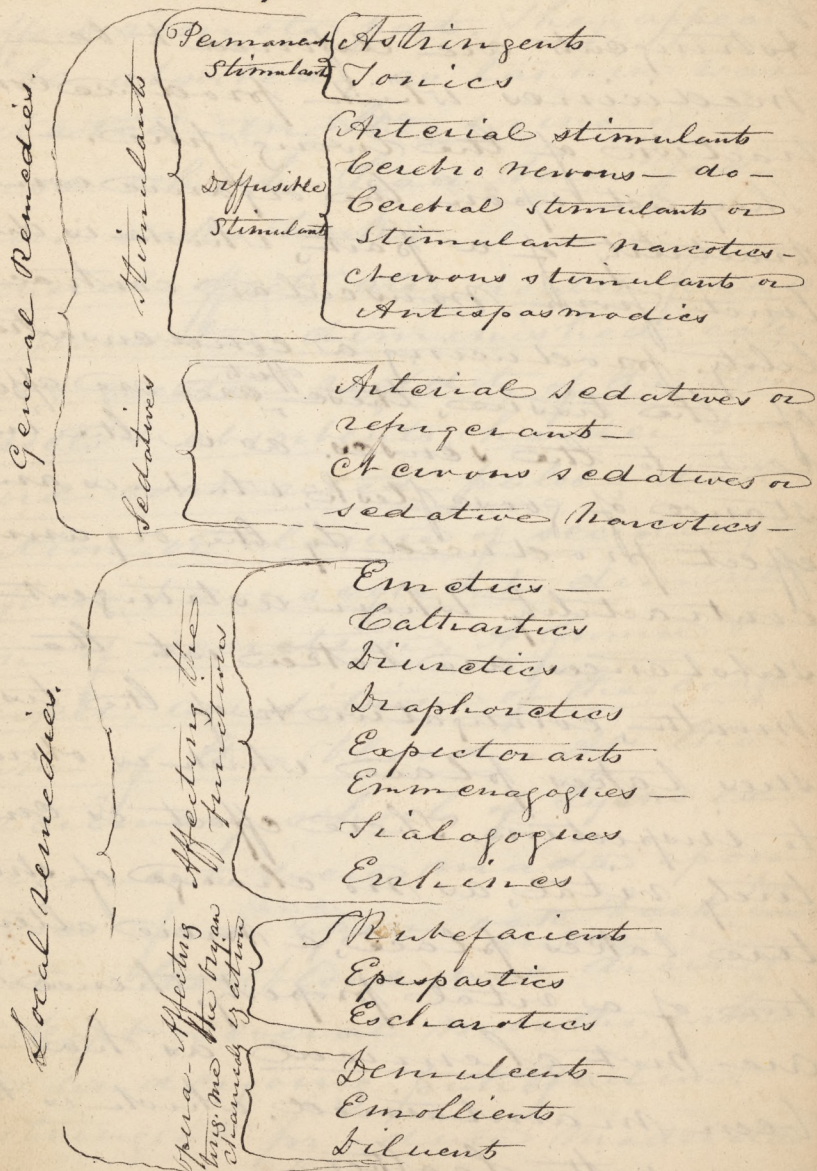 General Remedies.
Stimulants
Permanent
Stimulant
Astringents
Tonics
Diffusible
Stimulants
Arterial stimulants
Cerebro nervous - do -
Cerebral stimulants or
Stimulant narcotics -
Nervous stimulants or
Antispasmodics
Sedatives
Arterial sedatives or
refrigerant -
Nervous sedatives or
sedative Narcotics -
Local remedies.
Affecting the
functions
Emetics -
Cathartics
Diuretics
Diaphoretics
Expectorants
Emmenagogues -
Sialagogues
Errhines
Affecting
the organ
ization
Rubefacients
Epispastics
Escharotics
Opera-
ting me
chanically
Demulcents -
Emollients
Diluent